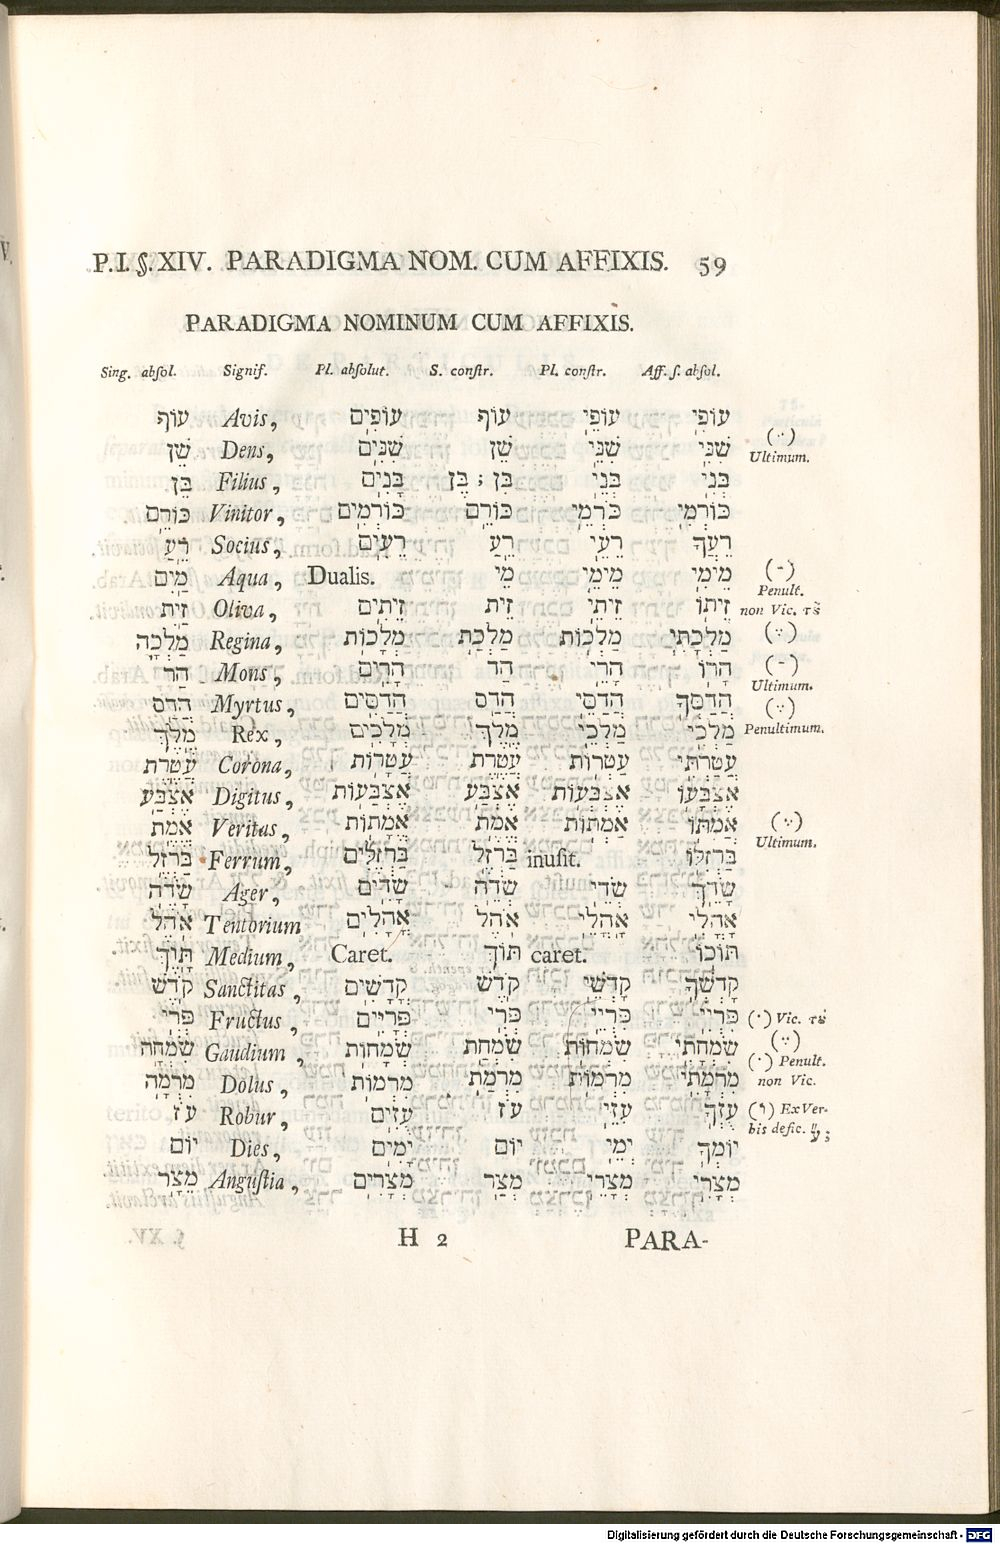 P.I. §. XIV. PARADIGMA NOM. CUM AFFIXIS. 59
PARADIGMA NOMINUM CUM AFFIXIS.
Sing. absol. Signif. Pl. absolut. S. constr. Pl. constr. Aff. s. absol.
עוֹף Avis, עוֹפִים עוֹף עוֹפֵי עוֹפִי
שֵׁן Dens, שִׁנִּים שֵׁן שִׁנֵּי שִׁנִּי (··) Ultimum.
בֵּן Filius, בָּנִים בֵּן ; בֶּן בְּנֵי בְּנִי
כּוֹרֵם Vinitor, כּוֹרְמִים כּוֹרֵם כֹּרְמֵי כּוֹרְמִי
רֵעַ Socius, רֵעִים רֵעַ רֵעֵי רֵעֲךָ
מַיִם Aqua, Dualis. מֵי מֵימֵי מֵימִי (-) Penult.
זַיִת Oliva, זֵיתִים זֵית זֵיתֵי זֵיתוֹ non Vic. τȣ̃
מַלְכָּה Regina, מְלָכוֹת מַלְכַּת מַלְכוֹת מַלְכָּתִי (∵)
הַר Mons, הָרִים הַר הָרֵי הָרוֹ (-) Ultimum.
הֲדַס Myrtus, הֲדַסִּים הֲדַס הֲדַסֵּי הֲדַסְּךָ (∵)
מֶלֶךְ Rex, מְלָכִים מֶלֶךְ מַלְכֵי מַלְכִּי Penultimum.
עֲטֶרֶת Corona, עֲטָרוֹת עֲטֶרֶת עַטְרוֹת עֲטַרְתִּי
אֶצְבַּע Digitus, אֶצְבָּעוֹת אֶצְבַּע אֶצְבְּעוֹת אֶצְבָּעוֹ
אֱמֶת Veritas, אֲמִתּוֹת אֱמֶת אֲמִתּוֹת אֲמִתּוֹ (∵) Ultimum.
בַּרְזֶל Ferrum, בַּרְזִלִּים בַּרְזֶל inusit. בַּרְזִלּוֹ
שָׂדֶה Ager, שָׂדִים שְׂדֵה שְׂדֵי שָׂדְךָ
אֹהֶל Tentorium אֹהָלִים אֹהֶל אָהֳלֵי אָהֳלִי
תָּוֶךְ Medium, Caret. תּוֹךְ caret. תּוֹכוֹ
קֹדֶשׁ Sanctitas, קָדָשִׁים קֹדֶשׁ קָדְשֵׁי קָדְשְׁךָ
פְּרִי Fructus, פְּרָיִים פְּרִי פִּרְיֵי פִּרְיִי (·) Vic. τȣ̃
שִׂמְחָה Gaudium, שְׂמָחוֹת שִׂמְחַת שִׂמְחוֹת שִׂמְחָתִי (∵) (·) Penult.
מִרְמָה Dolus, מִרְמוֹת מִרְמַת מִרְמוֹת מִרְמָתִי non Vic.
עֹז Robur, עֻזִּים עֹז עֻזֵּי עֻזְּךָ (וֹ) Ex Ver-
יוֹם Dies, יָמִים יוֹם יְמֵי יוֹמְךָ bis defic. ע ;
מֵצַר Angustia, מְצָרִים מְצַר מְצָרֵי מְצָרִי
H 2 PARA-
Digitalisierung gefördert durch die Deutsche Forschungsgemeinschaft - DFG